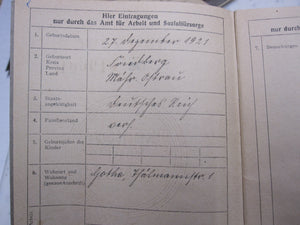 Hier Eintragungen
nur durch das Amt für Arbeit und Sozialfürsorge
1. Geburtsdatum 27. Dezember 1921
2. Geburtsort Friedberg
Kreis
Provinz Mähr. Ostrau
Land
3. Staats-
angehörigkeit Deutsches Reich
4. Familienstand verh.
5. Geburtsjahre der
Kinder
6. Wohnort und
Wohnung Gotha, Thälmannstr. 1
(genaue Anschrift)
7. Bemerkungen